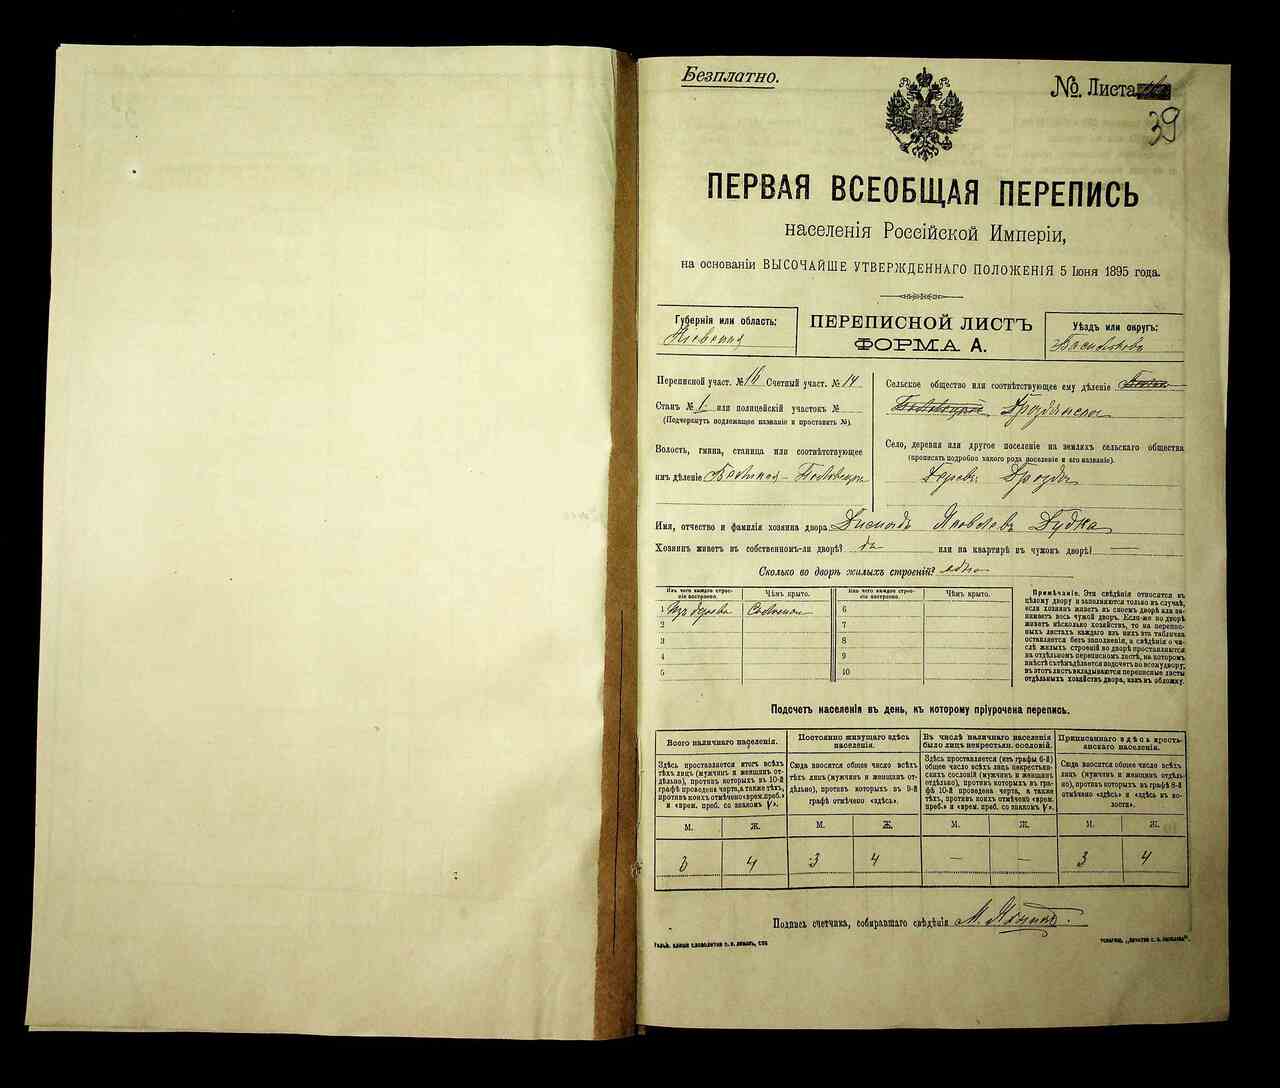 Безплатно.
№. Листа
39
ПЕРВАЯ ВСЕОБЩАЯ ПЕРЕПИСЬ
населенія Россійской Имперіи,
на основаніи ВЫСОЧАЙШЕ УТВЕРЖДЕННАГО ПОЛОЖЕНІЯ 5 Іюня 1895 года.
Губернія или область:
Кіевская
ПЕРЕПИСНОЙ ЛИСТЪ
ФОРМА А.
Уѣздъ или округъ:
Васильковъ
Переписной участ. № 16 Счетный участ. № 14
Станъ № 1 или полицейскій участокъ №
(Подчеркнуть подлежащее названіе и проставить №).
Волость, гмина, станица или соотвѣтствующее
имъ дѣленіе
Сельское общество или соотвѣтствующее ему дѣленіе
Дроздянское
Село, деревня или другое поселеніе на земляхъ сельскаго общества
(прописать подробно какого рода поселеніе и его названіе).
Дрозды
Имя, отчество и фамилія хозяина двора Яковлевъ Дудка
Хозяинъ живетъ въ собственномъ-ли дворѣ? да или на квартирѣ въ чужомъ дворѣ? —
Сколько во дворѣ жилыхъ строеній? одно
Изъ чего каждое строеніе построено.
Чѣмъ крыто.
Изъ чего каждое строеніе построено.
Чѣмъ крыто.
1 Изъ дерева Соломою
2
3
4
5
6
7
8
9
10
Примѣчаніе. Эти свѣдѣнія относятся къ
цѣлому двору и заполняются только въ случаѣ,
если хозяинъ живетъ въ своемъ дворѣ или занимаетъ
весь чужой дворъ. Если-же во дворѣ
живетъ нѣсколько хозяйствъ, то на переписныхъ
листахъ каждаго изъ нихъ эта табличка
оставляется безъ заполненія, а свѣдѣнія о числѣ
жилыхъ строеній во дворѣ проставляются
на отдѣльномъ переписномъ листѣ, на которомъ
вмѣстѣ съ тѣмъ дѣлается подсчетъ по всему двору;
въ этотъ листъ вкладываются переписные листы
отдѣльныхъ хозяйствъ двора, какъ въ обложку.
Подсчетъ населенія въ день, къ которому пріурочена перепись.
Всего наличнаго населенія.
Здѣсь проставляется итогъ всѣхъ
тѣхъ лицъ (мужчинъ и женщинъ отдѣльно),
противъ которыхъ въ 10-й
графѣ проведена черта, а также тѣхъ,
противъ коихъ отмѣчено «врем. преб.»
и «врем. преб. со знакомъ V».
Постоянно живущаго здѣсь
населенія.
Сюда вносится общее число всѣхъ
тѣхъ лицъ (мужчинъ и женщинъ отдѣльно),
противъ которыхъ въ 9-й
графѣ отмѣчено «здѣсь».
Въ числѣ наличнаго населенія
было лицъ некрестьян. сословій.
Здѣсь проставляется (изъ графы 6-й)
общее число всѣхъ лицъ некрестьянскихъ
сословій (мужчинъ и женщинъ
отдѣльно), противъ которыхъ въ графѣ
10-й проведена черта, а также
тѣхъ, противъ коихъ отмѣчено «врем.
преб.» и «врем. преб. со знакомъ V».
Приписаннаго здѣсь крестьянскаго
населенія.
Сюда вносится общее число всѣхъ
лицъ (мужчинъ и женщинъ отдѣльно),
противъ которыхъ въ графѣ 8-й
отмѣчено «здѣсь» и «здѣсь въ волости».
М. Ж. М. Ж. М. Ж. М. Ж.
3 4 3 4 — — 3 4
Подпись счетчика, собиравшаго свѣдѣнія